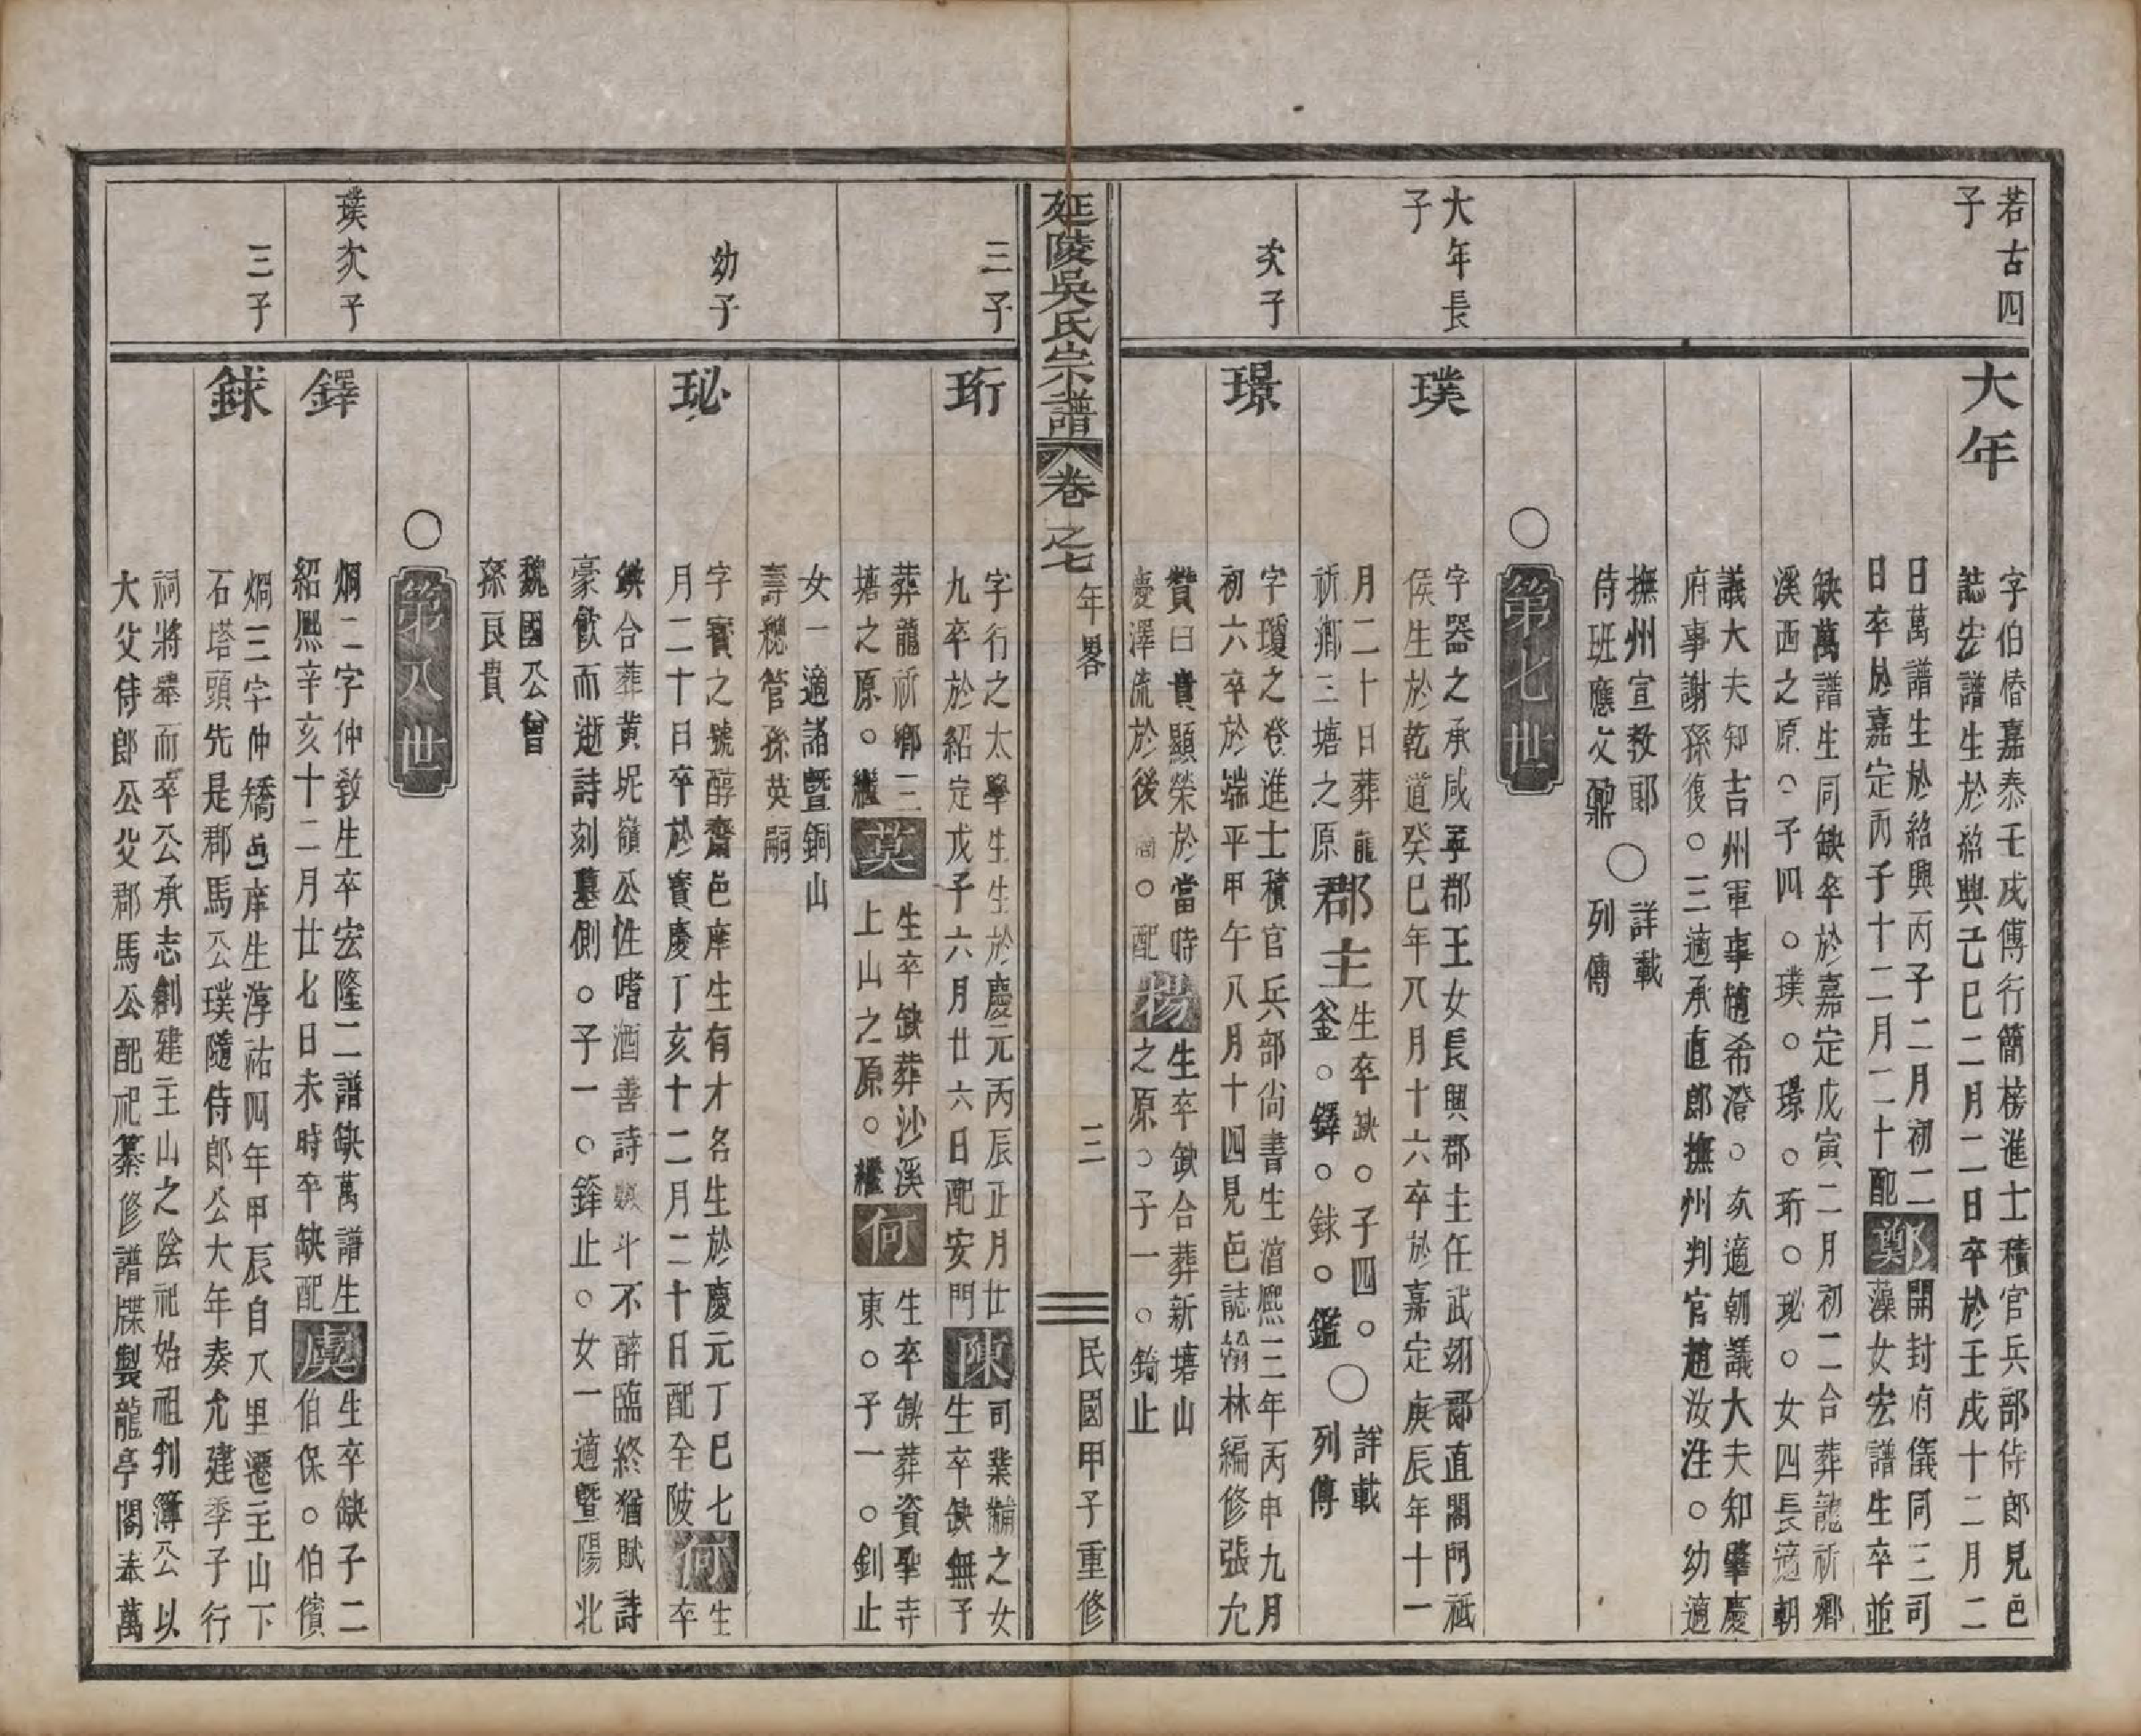 若古四
子
大年
字伯椿嘉泰壬戌傳行簡榜進士積官兵部侍郎見邑
誌宏譜生於紹興己巳二月二日卒於壬戌十二月二
日萬譜生於紹興丙子二月初二
日卒於嘉定丙子十二月二十配
鄭
開封府儀同三司
藻女宏譜生卒並
缺萬譜生同缺卒於嘉定戊寅二月初二合葬龍祈鄉
溪西之原○子四○璞○璟○珩○珌○女四長適朝
議大夫知吉州軍事趙希澄○次適朝議大夫知肇慶
府事謝孫復○三適承直郎撫州判官趙汝泩○幼適
撫州宣教郎
侍班應文鼎
○
詳載
列傳
○
第七世
大年長
子
璞
字器之承咸寧郡王女長興郡主任武翊郡直閣門祗
侯生於乾道癸巳年八月十六卒於嘉定庚辰年十一
月二十日葬龍
祈鄉三塘之原
郡主
生卒缺○子四○
釜○鐸○銶○鑑
○
詳載
列傳
次子
璟
字瓊之登進士積官兵部尚書生淳熙三年丙申九月
初六卒於端平甲午八月十四見邑誌翰林編修張允
贊曰貴顯榮於當時
慶澤流於後○配
楊
生卒缺合葬新塘山
之原○子一○錡止
延陵吳氏宗譜
卷之七
年畧
三
民國甲子重修
三子
珩
字行之太學生生於慶元丙辰正月廿
九卒於紹定戊子六月廿六日配安門
陳
司業黼之女
生卒缺無子
葬龍祈鄉三
塘之原○繼
莫
生卒缺葬沙溪
上山之原○繼
何
生卒缺葬資聖寺
東○子一○釗止
女一適諸暨銅山
壽穗管孫英嗣
幼子
珌
字寶之號醇齋邑庠生有才名生於慶元丁巳七
月二十日卒於寶慶丁亥十二月二十日配全陂
何
生
卒
缺合葬黄坭嶺公性嗜酒善詩斗不醉臨終猶賦詩
豪飲而逝詩刻墓側○子一○鋒止○女一適暨陽北
魏國公曾
孫良貴
○
第八世
璞次子
鐸
烱二字仲敎生卒宏隆二譜缺萬譜生
紹熙辛亥十二月廿七日未時卒缺配
虞
生卒缺子二
伯保○伯儐
三子
銶
烱三字仲矯邑庠生淳祐四年甲辰自八里遷主山下
石塔頭先是郡馬公璞隨侍郎公大年奏允建季子行
祠將舉而卒公承志創建主山之陰祀始祖判簿公以
大父侍郎公父郡馬公配祀纂修譜牒製龍亭閣奉萬